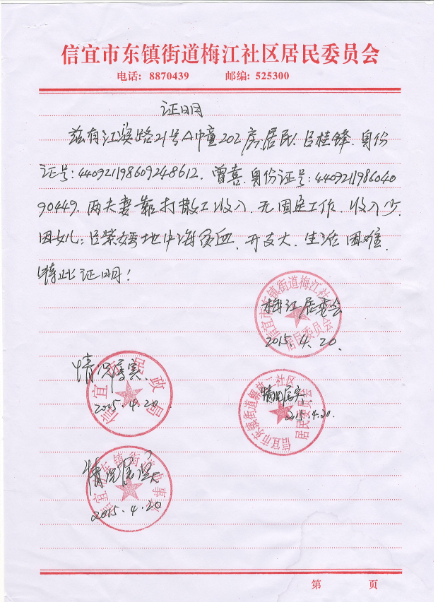 信宜市东镇街道梅江社区居民委员会
电话: 8870439 邮编: 525300
证明
兹有江滨路21号A中童202房居民 吕桂锋 身份
证号:440921198609248612. 曾喜 身份证号:4409211986040
90449. 两夫妻靠打散工收入. 无固定工作. 收入少.
因女儿:吕荣嬉地中海贫血. 开支大. 生活困难
特此证明!
梅江居委会
2015.4.20.
情况属实
2015.4.20.
情况属实
2015.4.20.
情况属实
2015.4.20
第 页